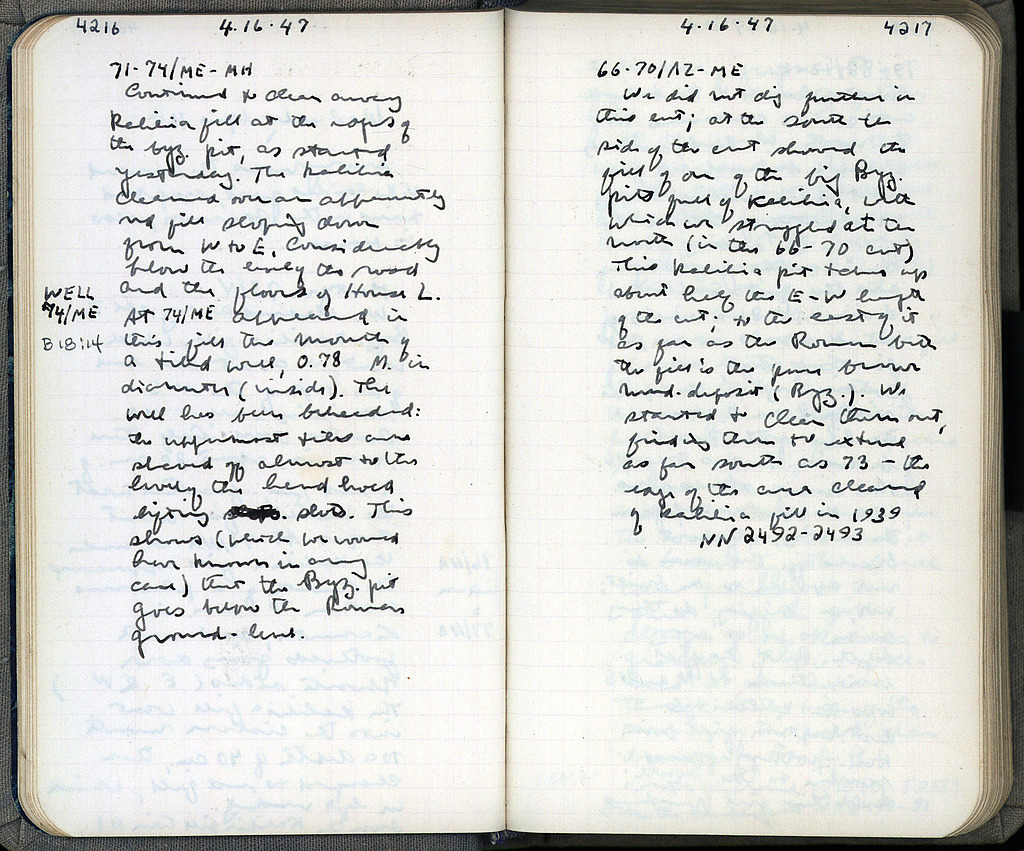 4216
4.16.47
71-74/ME-MH
Continued to clear away
kalibia fill at the edges of
the byz. pit, as started
yesterday. The kalibia
cleaned over an apparently
red fill sloping down
from W to E, considerably
below the level of the road
and the floors of House L.
WELL
74/ME
B 18:14
At 74/ME appeared in
this fill the mouth of
a tiled well, 0.78 M. in
diameter (inside). The
well has been beheaded:
the uppermost tiles are
shaved off almost to the
level of the hand hold
lifting slots. This
shows (which we would
have known in any
case) that the Byz. pit
goes below the Roman
ground-level.
4.16.47
4217
66-70/ΛZ-ME
We did not dig further in
this cut; at the south the
side of the cut showed the
fill of one of the big Byz.
pits full of Kalibia, with
which we struggled at the
north (in the 66-70 cut)
This kalibia pit takes up
about half the E-W length
of the cut; to the east of it
as far as the Roman bath
the fill is the pure brown
mud-deposit (Byz.). We
started to clear them out,
finding them to extend
as far south as 73 - the
edge of the area cleared
of kalibia fill in 1939
NN 2492-2493